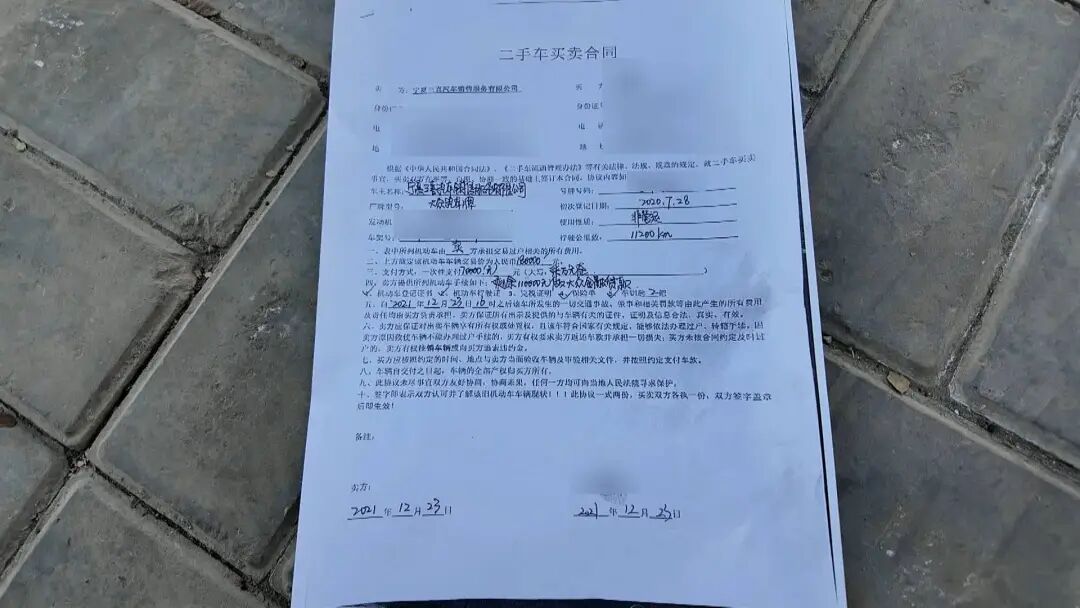 二手车买卖合同
卖 方：宁夏三真汽车销售服务有限公司
买 方
身份
身份证
电
电
地
地
根据《中华人民共和国合同法》、《二手车流通管理办法》等有关法律、法规、规章的规定，就二手车买卖
事宜，买卖双方在平等、自愿、协商一致的基础上签订本合同，协议内容如
车主名称： 号牌号码：
厂牌型号： 大众 车牌 初次登记日期：2020.7.28
发动机 使用性质：非营运
车架号： 行驶公里数：11200km
一、表中所列机动车由 卖 方承担交易过户相关的所有费用。
二、上方商定该机动车车辆交易价为人民币180000 元。
三、支付方式：一次性支付70000(元) 元（大写：柒万元 ）
四、卖方提供所列机动车手续如下： 剩余110000元 大众金融贷款
1、机动车登记证书 2、机动车行驶证 3、完税证明 保险单 车钥匙 2 把
五、自2021年12月23日16时之后该车所发生的一切交通事故、肇事和相关罚款等由此产生的所有费用
及责任均由买方负责承担。卖方保证所有出示及提供的与车辆有关的证件，证明及信息合法、真实、有效。
六、卖方应保证对出卖车辆享有所有权或处置权，且该车符合国家有关规定，能够依法办理过户、转籍手续。因
卖方原因致使车辆不能办理过户手续的，买方有权要求卖方返还车款并承担一切损失；买方未按合同约定及时过
户的，卖方有权 车辆或向买方追索违约金。
七、买方应按照约定的时间、地点与卖方当面验收车辆及审验相关文件，并按照约定支付车款。
八、车辆自交付之日起，车辆的全部产权归买方所有。
九、此协议未尽事宜双方友好协商，协商未果，任何一方均可向当地人民法院寻求保护。
十、签字即表示双方认可并了解该旧机动车车辆现状！！！此协议一式两份，买卖双方各执一份，双方签字盖章
后即生效！
备注：
卖方：
2021年12月23日
2021年12月23日